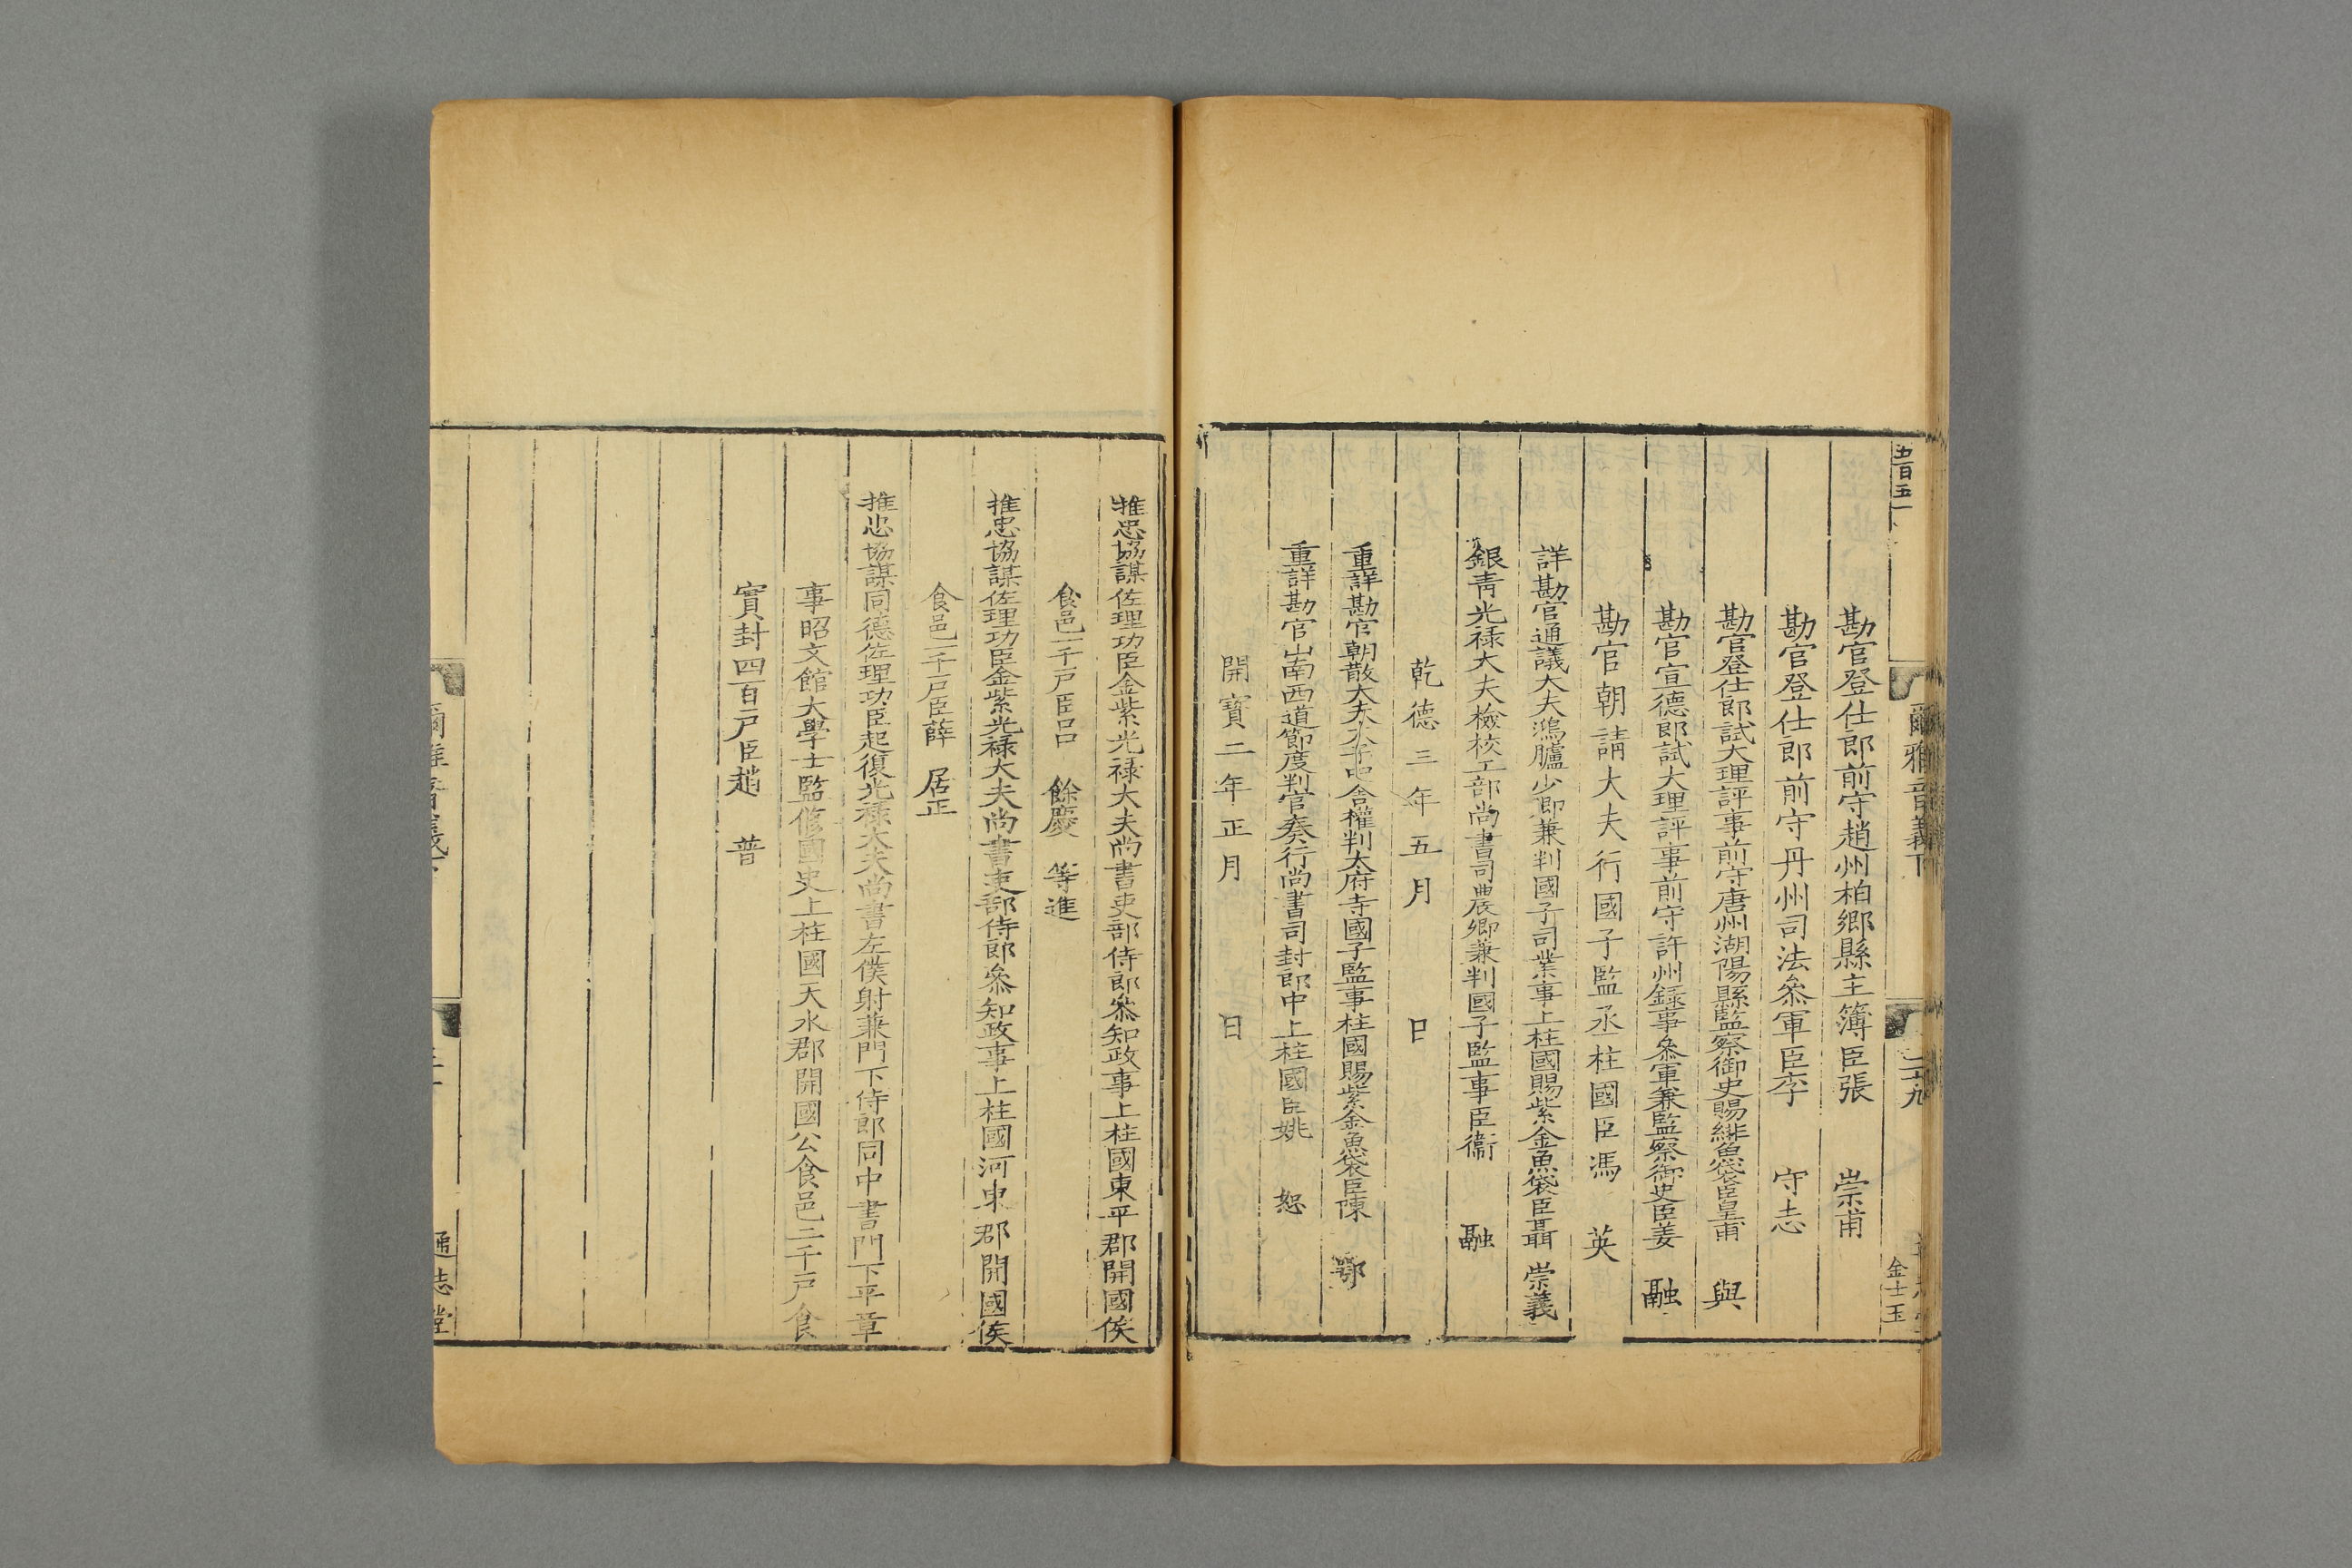 五百五
爾雅音義下
二十九
金士玉
勘官登仕郎前守趙州柏鄉縣主簿臣張 崇甫
勘官登仕郎前守丹州司法叅軍臣李 守志
勘官登仕郎試大理評事前守唐州湖陽縣監察御史賜緋魚袋臣皇甫 與
勘官宣德郎試大理評事前守許州録事叅軍兼監察御史臣姜 融
勘官朝請大夫行國子監丞柱國臣馮 英
詳勘官通議大夫鴻臚少卿兼判國子司業事上柱國賜紫金魚袋臣聶 崇義
銀青光禄大夫檢校工部尚書司農卿兼判國子監事臣衞 融
乾德三年五月 日
重詳勘官朝散大夫太子中舍權判太府寺國子監事柱國賜紫金魚袋臣陳 鄂
重詳勘官山南西道節度判官奏行尚書司封郎中上柱國臣姚 恕
開寶二年正月 日
推忠協謀佐理功臣金紫光禄大夫尚書吏部侍郎叅知政事上柱國東平郡開國侯
食邑一千戸臣吕 餘慶 等進
推忠協謀佐理功臣金紫光禄大夫尚書吏部侍郎叅知政事上柱國河東郡開國侯
食邑一千戸臣薛 居正
推忠協謀同德佐理功臣起復光禄大夫尚書左僕射兼門下侍郎同中書門下平章
事昭文館大學士監修國史上柱國天水郡開國公食邑二千戸食
實封四百戸臣趙 普
爾雅音義下
通志堂